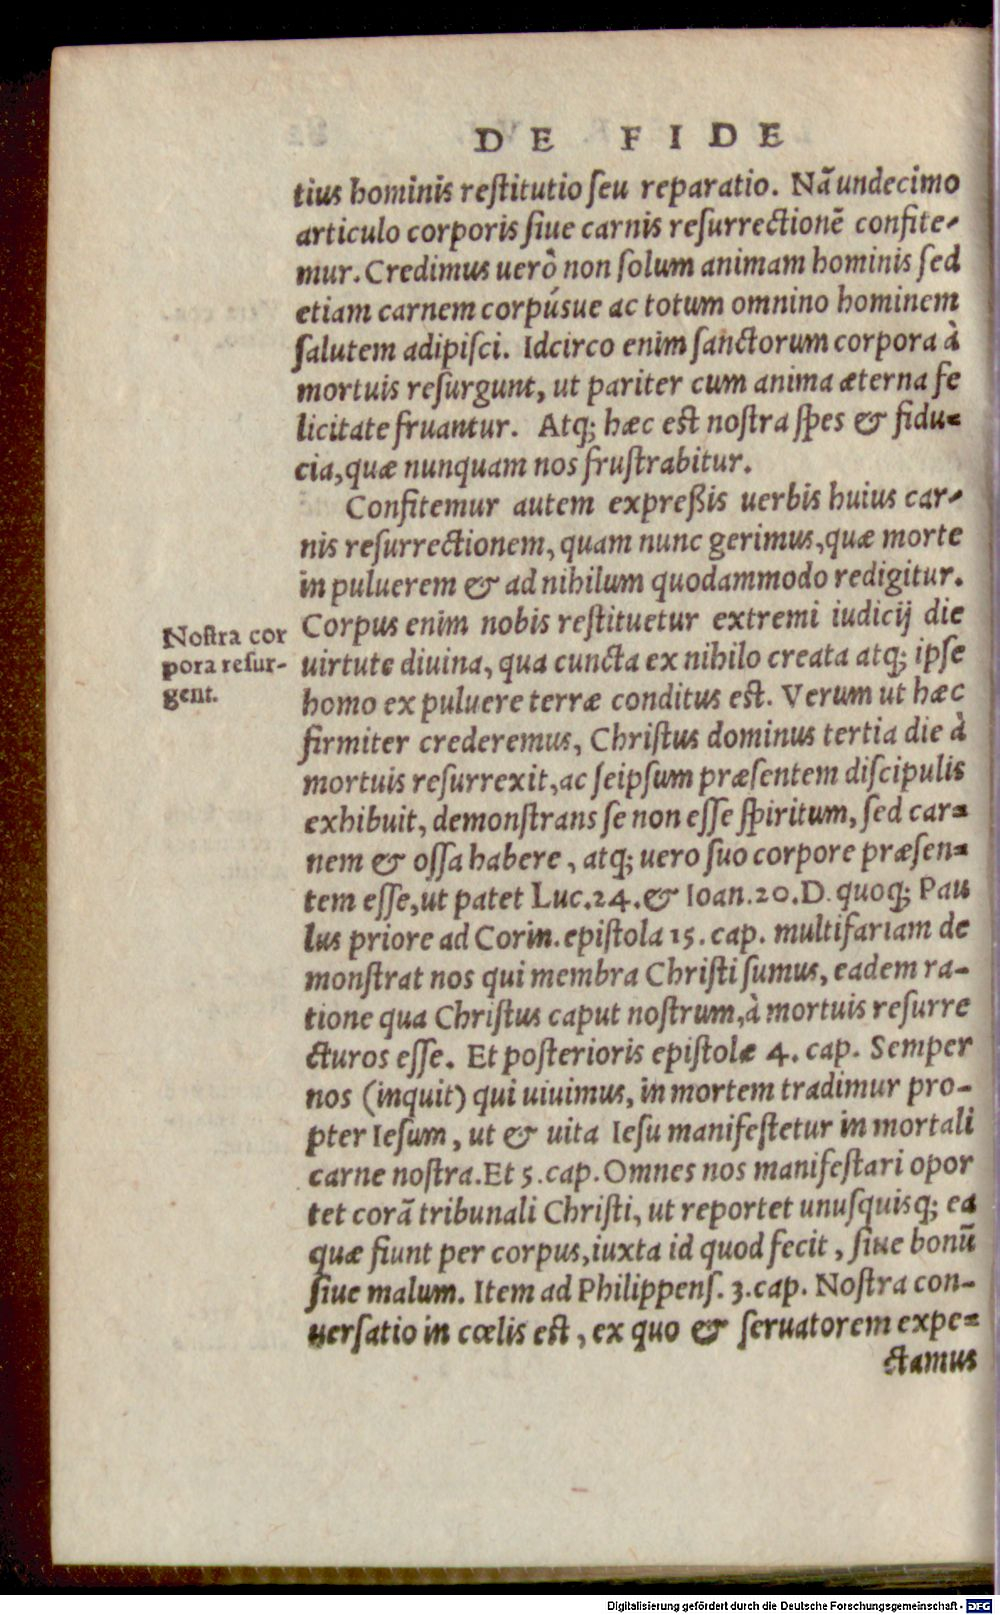 DE FIDE
tius hominis reſtitutio ſeu reparatio. Nã undecimo
articulo corporis ſiue carnis reſurrectionẽ confite-
mur. Credimus uerò non ſolum animam hominis ſed
etiam carnem corpúsue ac totum omnino hominem
ſalutem adipiſci. Idcirco enim ſanctorum corpora à
mortuis reſurgunt, ut pariter cum anima æterna fe
licitate fruantur. Atq; hæc eſt noſtra ſpes & fidu-
cia, quæ nunquam nos fruſtrabitur.
Confitemur autem expreßis uerbis huius car-
nis reſurrectionem, quam nunc gerimus, quæ morte
in puluerem & ad nihilum quodammodo redigitur.
Corpus enim nobis reſtituetur extremi iudicij die
uirtute diuina, qua cuncta ex nihilo creata atq; ipſe
homo ex puluere terræ conditus eſt. Verum ut hæc
firmiter crederemus, Chriſtus dominus tertia die à
mortuis reſurrexit, ac ſeipſum præſentem diſcipulis
exhibuit, demonſtrans ſe non eſſe ſpiritum, ſed car-
nem & oſſa habere, atq; uero ſuo corpore præſen-
tem eſſe, ut patet Luc. 24. & Ioan. 20. D. quoq; Pau
lus priore ad Corin. epiſtola 15. cap. multifariam de
monſtrat nos qui membra Chriſti ſumus, eadem ra-
tione qua Chriſtus caput noſtrum, à mortuis reſurre
cturos eſſe. Et poſterioris epiſtolæ 4. cap. Semper
nos (inquit) qui uiuimus, in mortem tradimur pro-
pter Ieſum, ut & uita Ieſu manifeſtetur in mortali
carne noſtra. Et 5. cap. Omnes nos manifeſtari opor
tet corã tribunali Chriſti, ut reportet unuſquisq; ea
quæ fiunt per corpus, iuxta id quod fecit, ſiue bonũ
ſiue malum. Item ad Philippenſ. 3. cap. Noſtra con-
uerſatio in cœlis eſt, ex quo & ſeruatorem expe-
ctamus
Noſtra cor
pora reſur-
gent.
Digitalisierung gefördert durch die Deutsche Forschungsgemeinschaft - DFG